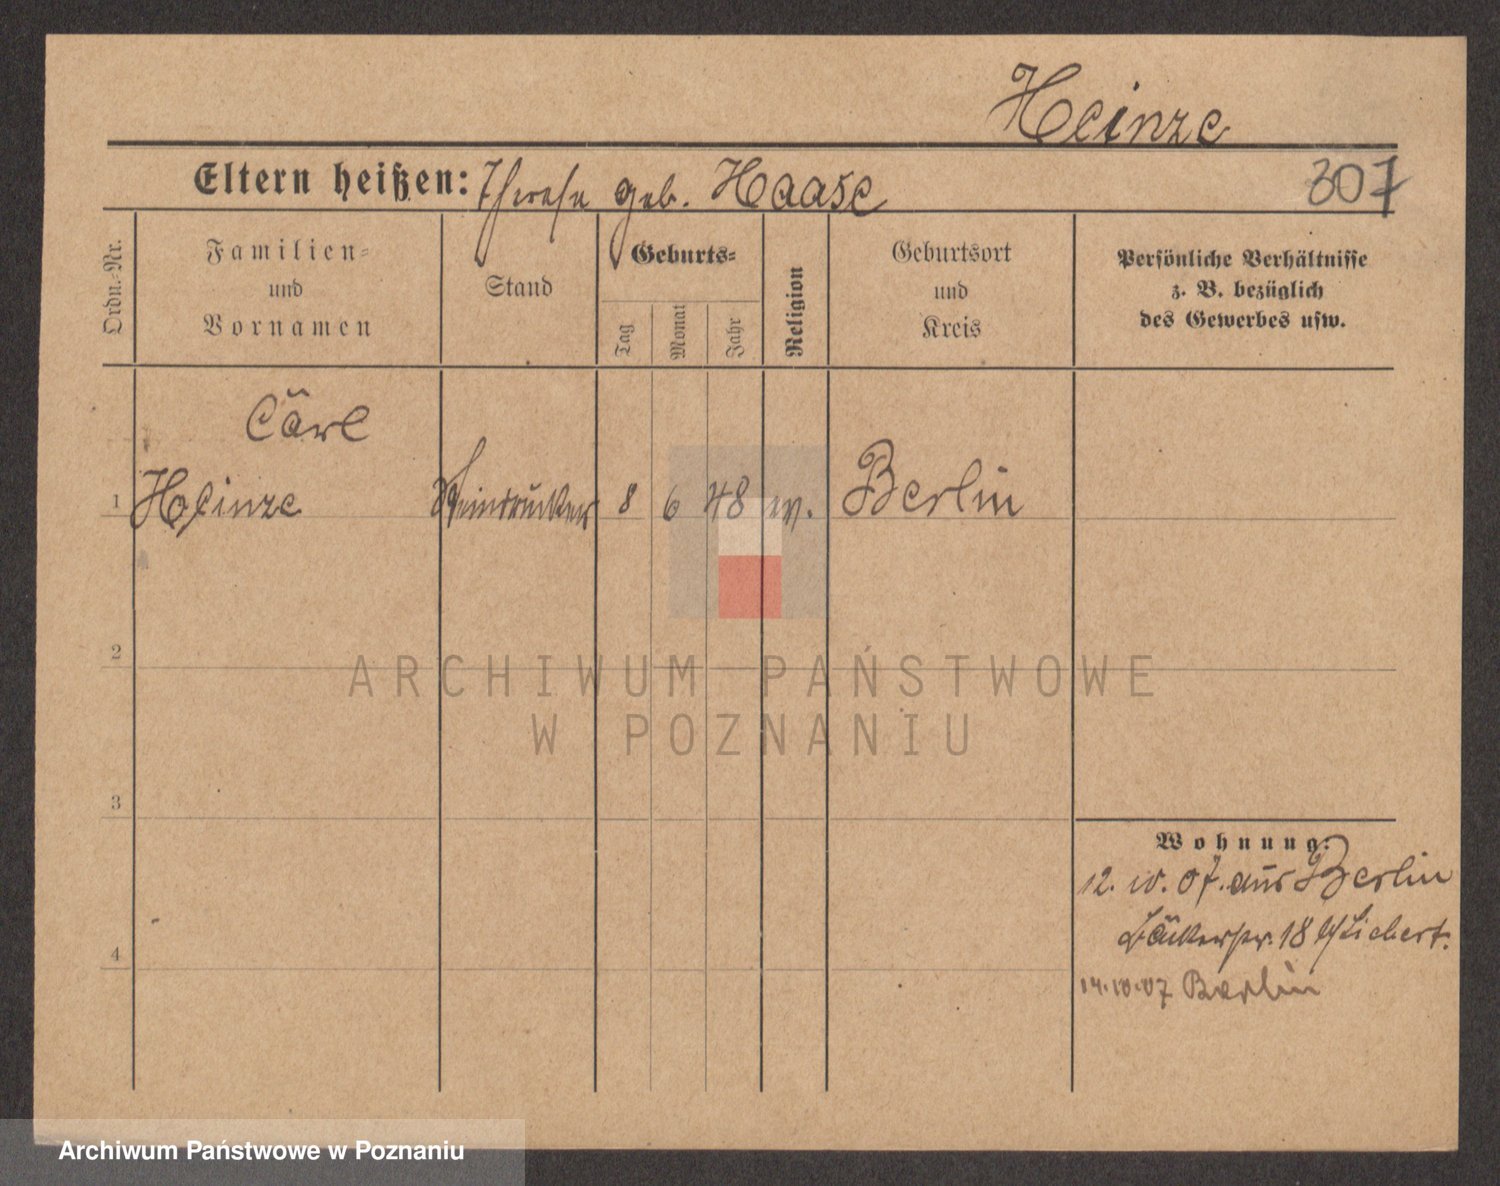 Heinze
Eltern heißen: Therese geb. Haase
307
Ordn.-Nr.
Familien-
und
Vornamen
Stand
Geburts-
Tag
Monat
Jahr
Religion
Geburtsort
und
Kreis
Persönliche Verhältnisse
z. B. bezüglich
des Gewerbes usw.
Carl
1 Heinze Steindrucker 8 6 48 ev. Berlin
2
3
4
Wohnung:
12. 10. 07. aus Berlin
Bäckerstr. 18 b/Liebert.
14.10.07 Berlin
ARCHIWUM PAŃSTWOWE
W POZNANIU
Archiwum Państwowe w Poznaniu